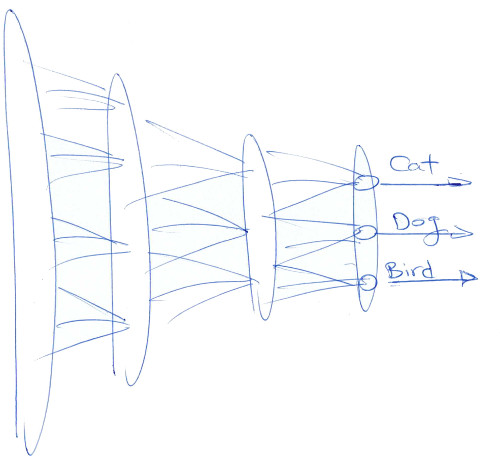 Cat
Dog
Bird